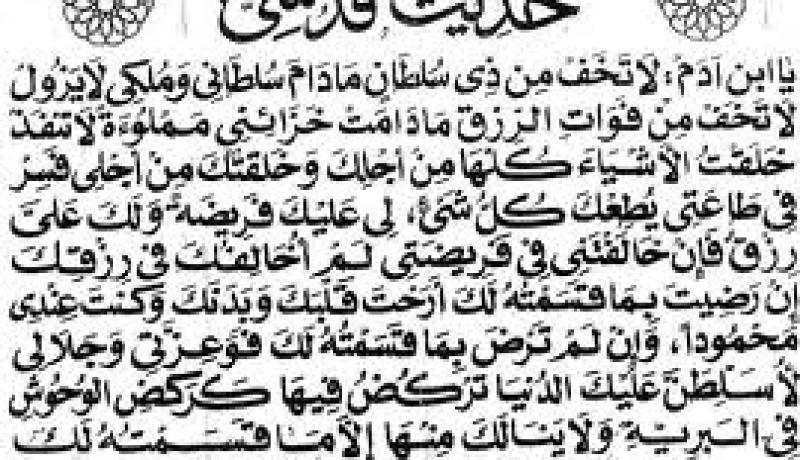 حديث قدسي
يا ابن آدم: لا تخف من ذي سلطان ما دام سلطاني وملكي لا يزول
لا تخف من فوات الرزق ما دامت خزائني مملوءة لا تنفذ
خلقت الأشياء كلها من أجلك وخلقتك من أجلي فسر
في طاعتي يطعك كل شئ، لي عليك فريضة ولك علي
رزق فإن خالفتني في فريضتي لم أخالفك في رزقك
إن رضيت بما قسمته لك أرحت قلبك وبدنك وكنت عندي
محموداً، وإن لم ترض بما قسمته لك فوعزتي وجلالي
لأسلطن عليك الدنيا تركض فيها كركض الوحوش
في البرية ولا ينالك منها إلا ما قسمته لك